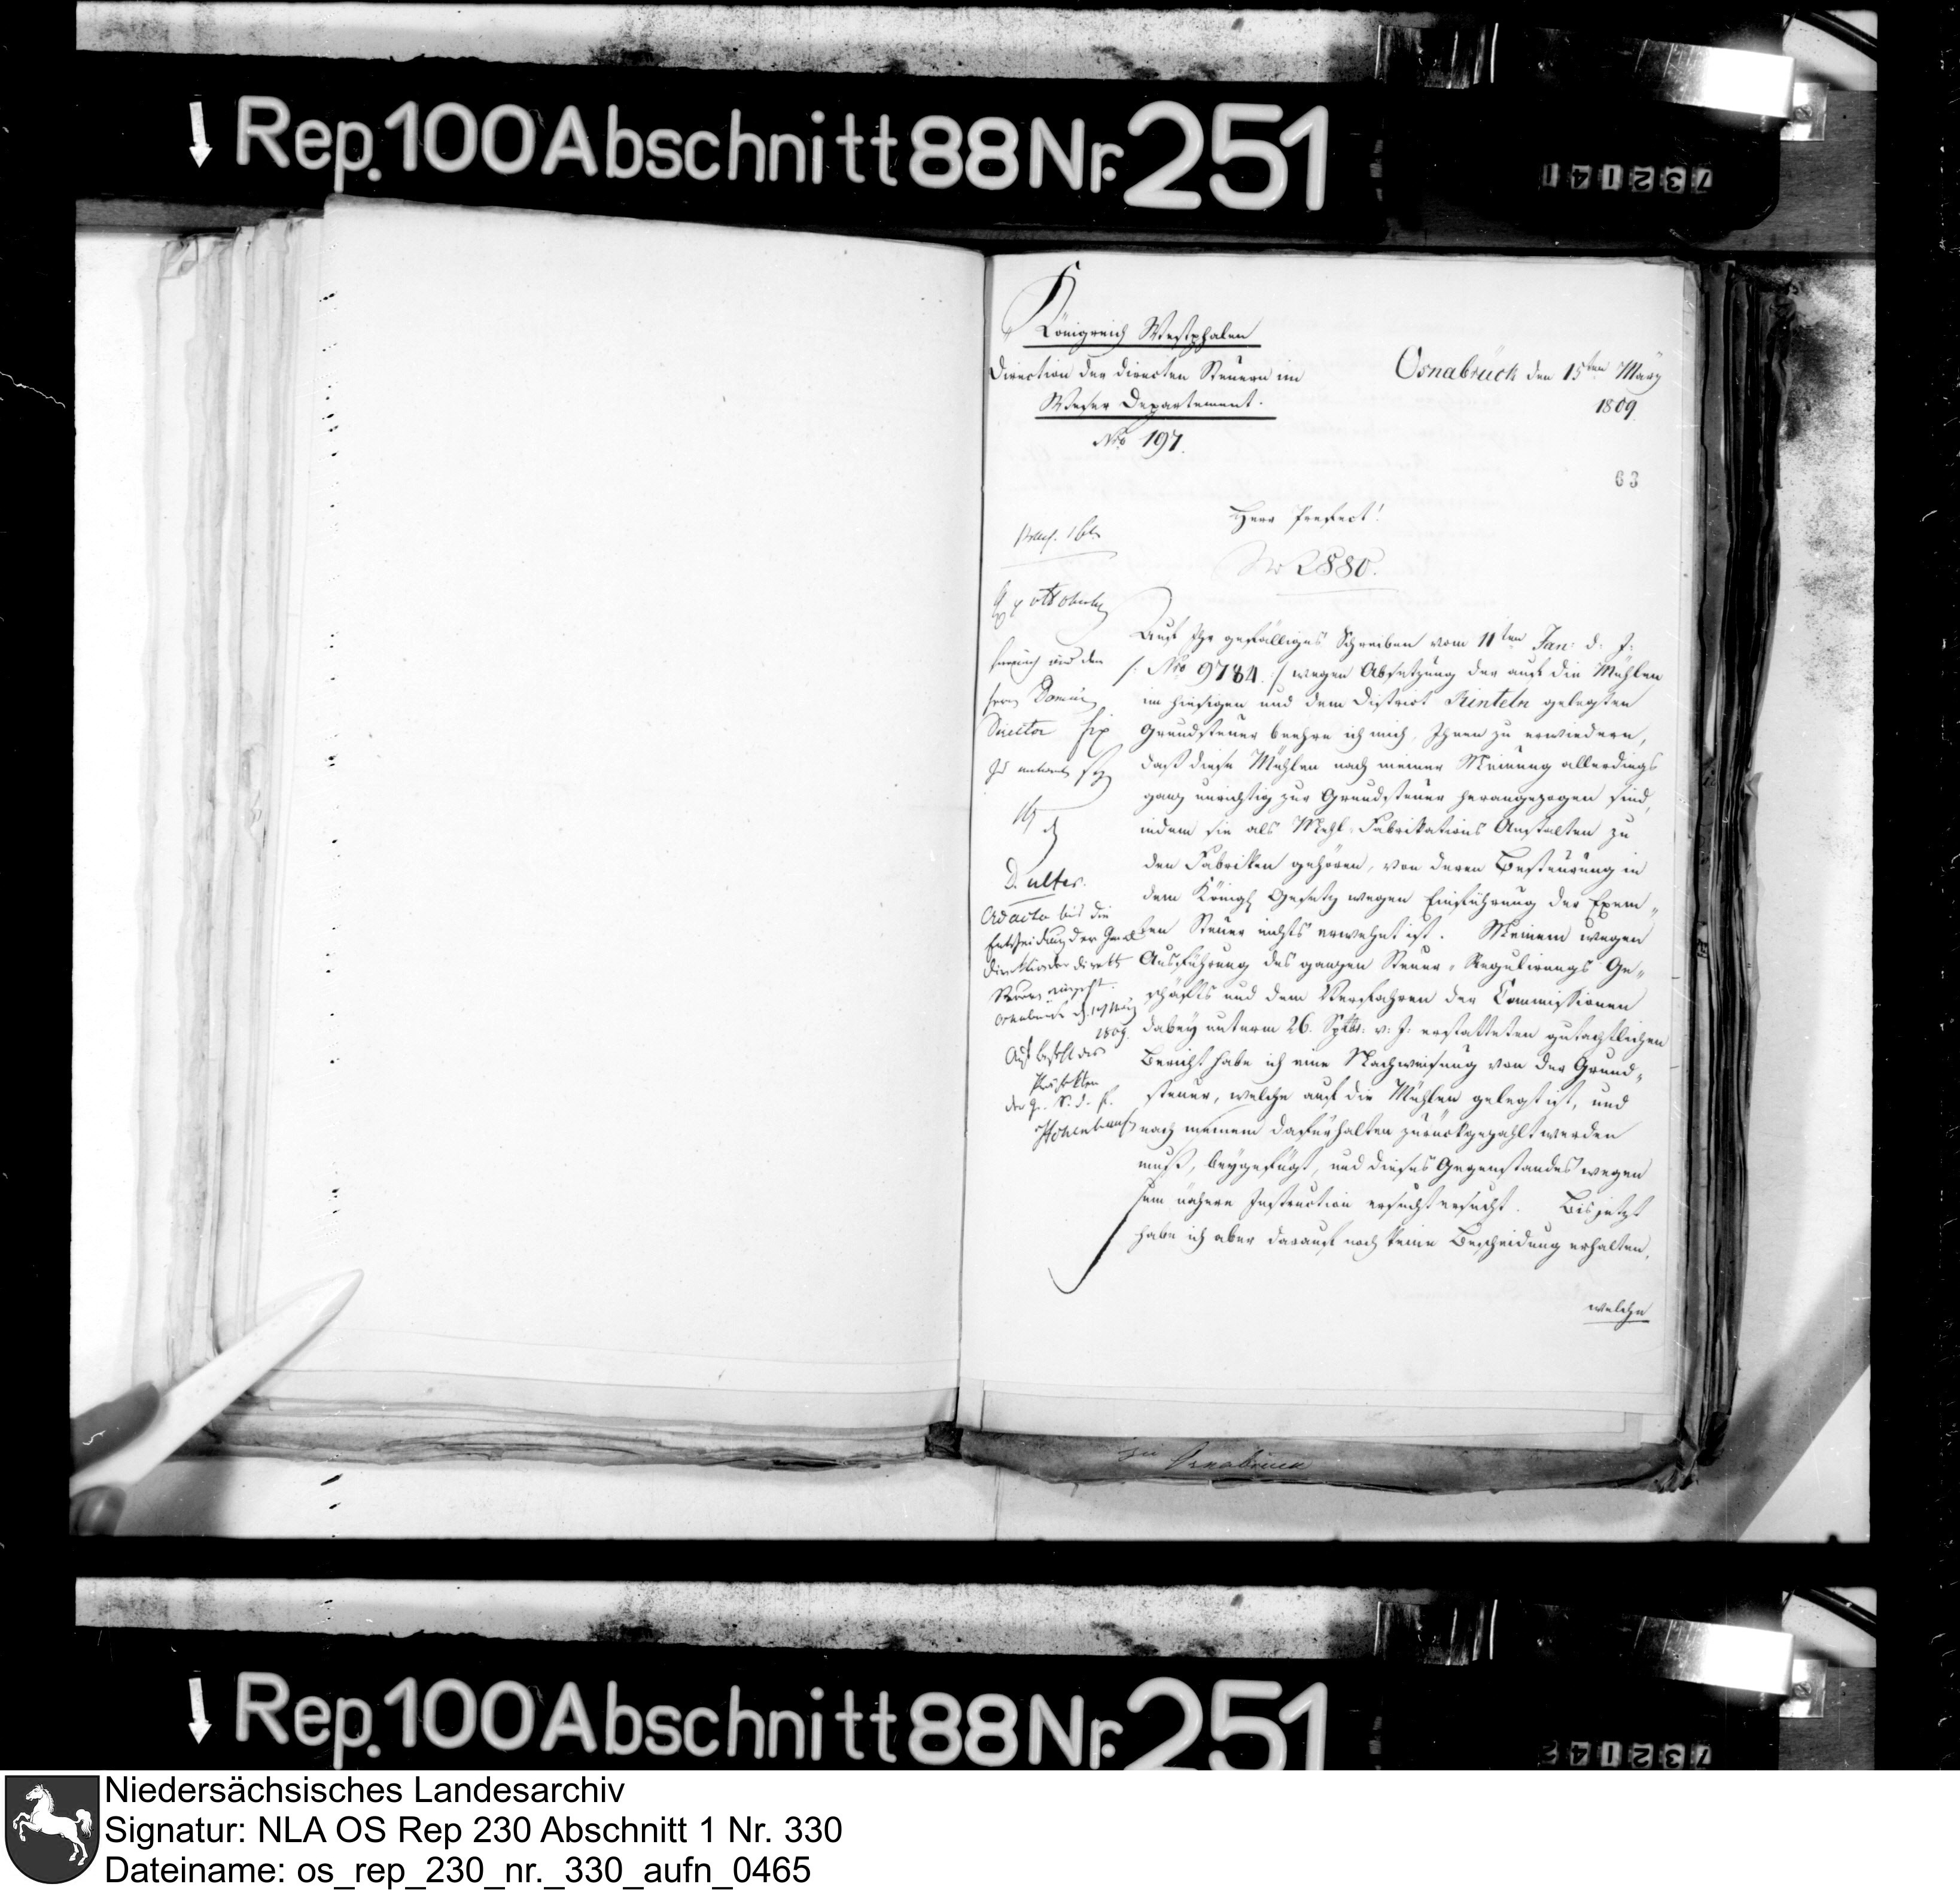 Rep. 100 Abschnitt 88 Nr. 251
732141
Königreich Westphalen
Direction der directen Steuern im
Weser Departement.
No 197.
Osnabrück den 15ten März
1809.
63
Herr Prefect!
No 2880.
Auf Ihr gefälliges Schreiben vom 11ten Jan: d. J:
/: No 9784. :/ wegen Absetzung der auf die Mühlen
im hiesigen und dem District Rinteln gelegten
Grundsteuer beehre ich mich, Ihnen zu erwiedern,
daß diese Mühlen nach meiner Meinung allerdings
ganz unrichtig zur Grundsteuer herangezogen sind,
indem sie als Mehl-Fabrikations Anstalten zu
den Fabriken gehören, von deren Besteurung in
dem Königl Gesetz wegen Einführung der Exem„
ten Steuer nichts erwehnt ist. Meinem wegen
Ausführung des ganzen Steuer„Regulirungs Ge„
schäfts und dem Verfahren der Commissionen
dabey unterm 26. Sptbr: v: J: erstatteten gutachtlichen
Bericht habe ich eine Nachweisung von der Grund„
steuer, welche auf die Mühlen gelegt ist, und
nach meinem dafürhalten zurückgezahlt werden
muß, beygefügt, und dieses Gegenstandes wegen
um nähere Instruction ersucht ersucht. Bis jetzt
habe ich aber darauf noch keine Bescheidung erhalten,
welche
hiernach und den
Herrn Domain
Director
zu
D. ulter.
Ad acta bis die
Entscheidung der Genal
direktion der direkten
Steuern eingeht.
Osnabrück d. März
1809.
Auf Befehl des
Präfekten
der G. S. d. P.
Hohenhausen
zu Osnabrück
Rep. 100 Abschnitt 88 Nr. 251
732142
Niedersächsisches Landesarchiv
Signatur: NLA OS Rep 230 Abschnitt 1 Nr. 330
Dateiname: os_rep_230_nr._330_aufn_0465